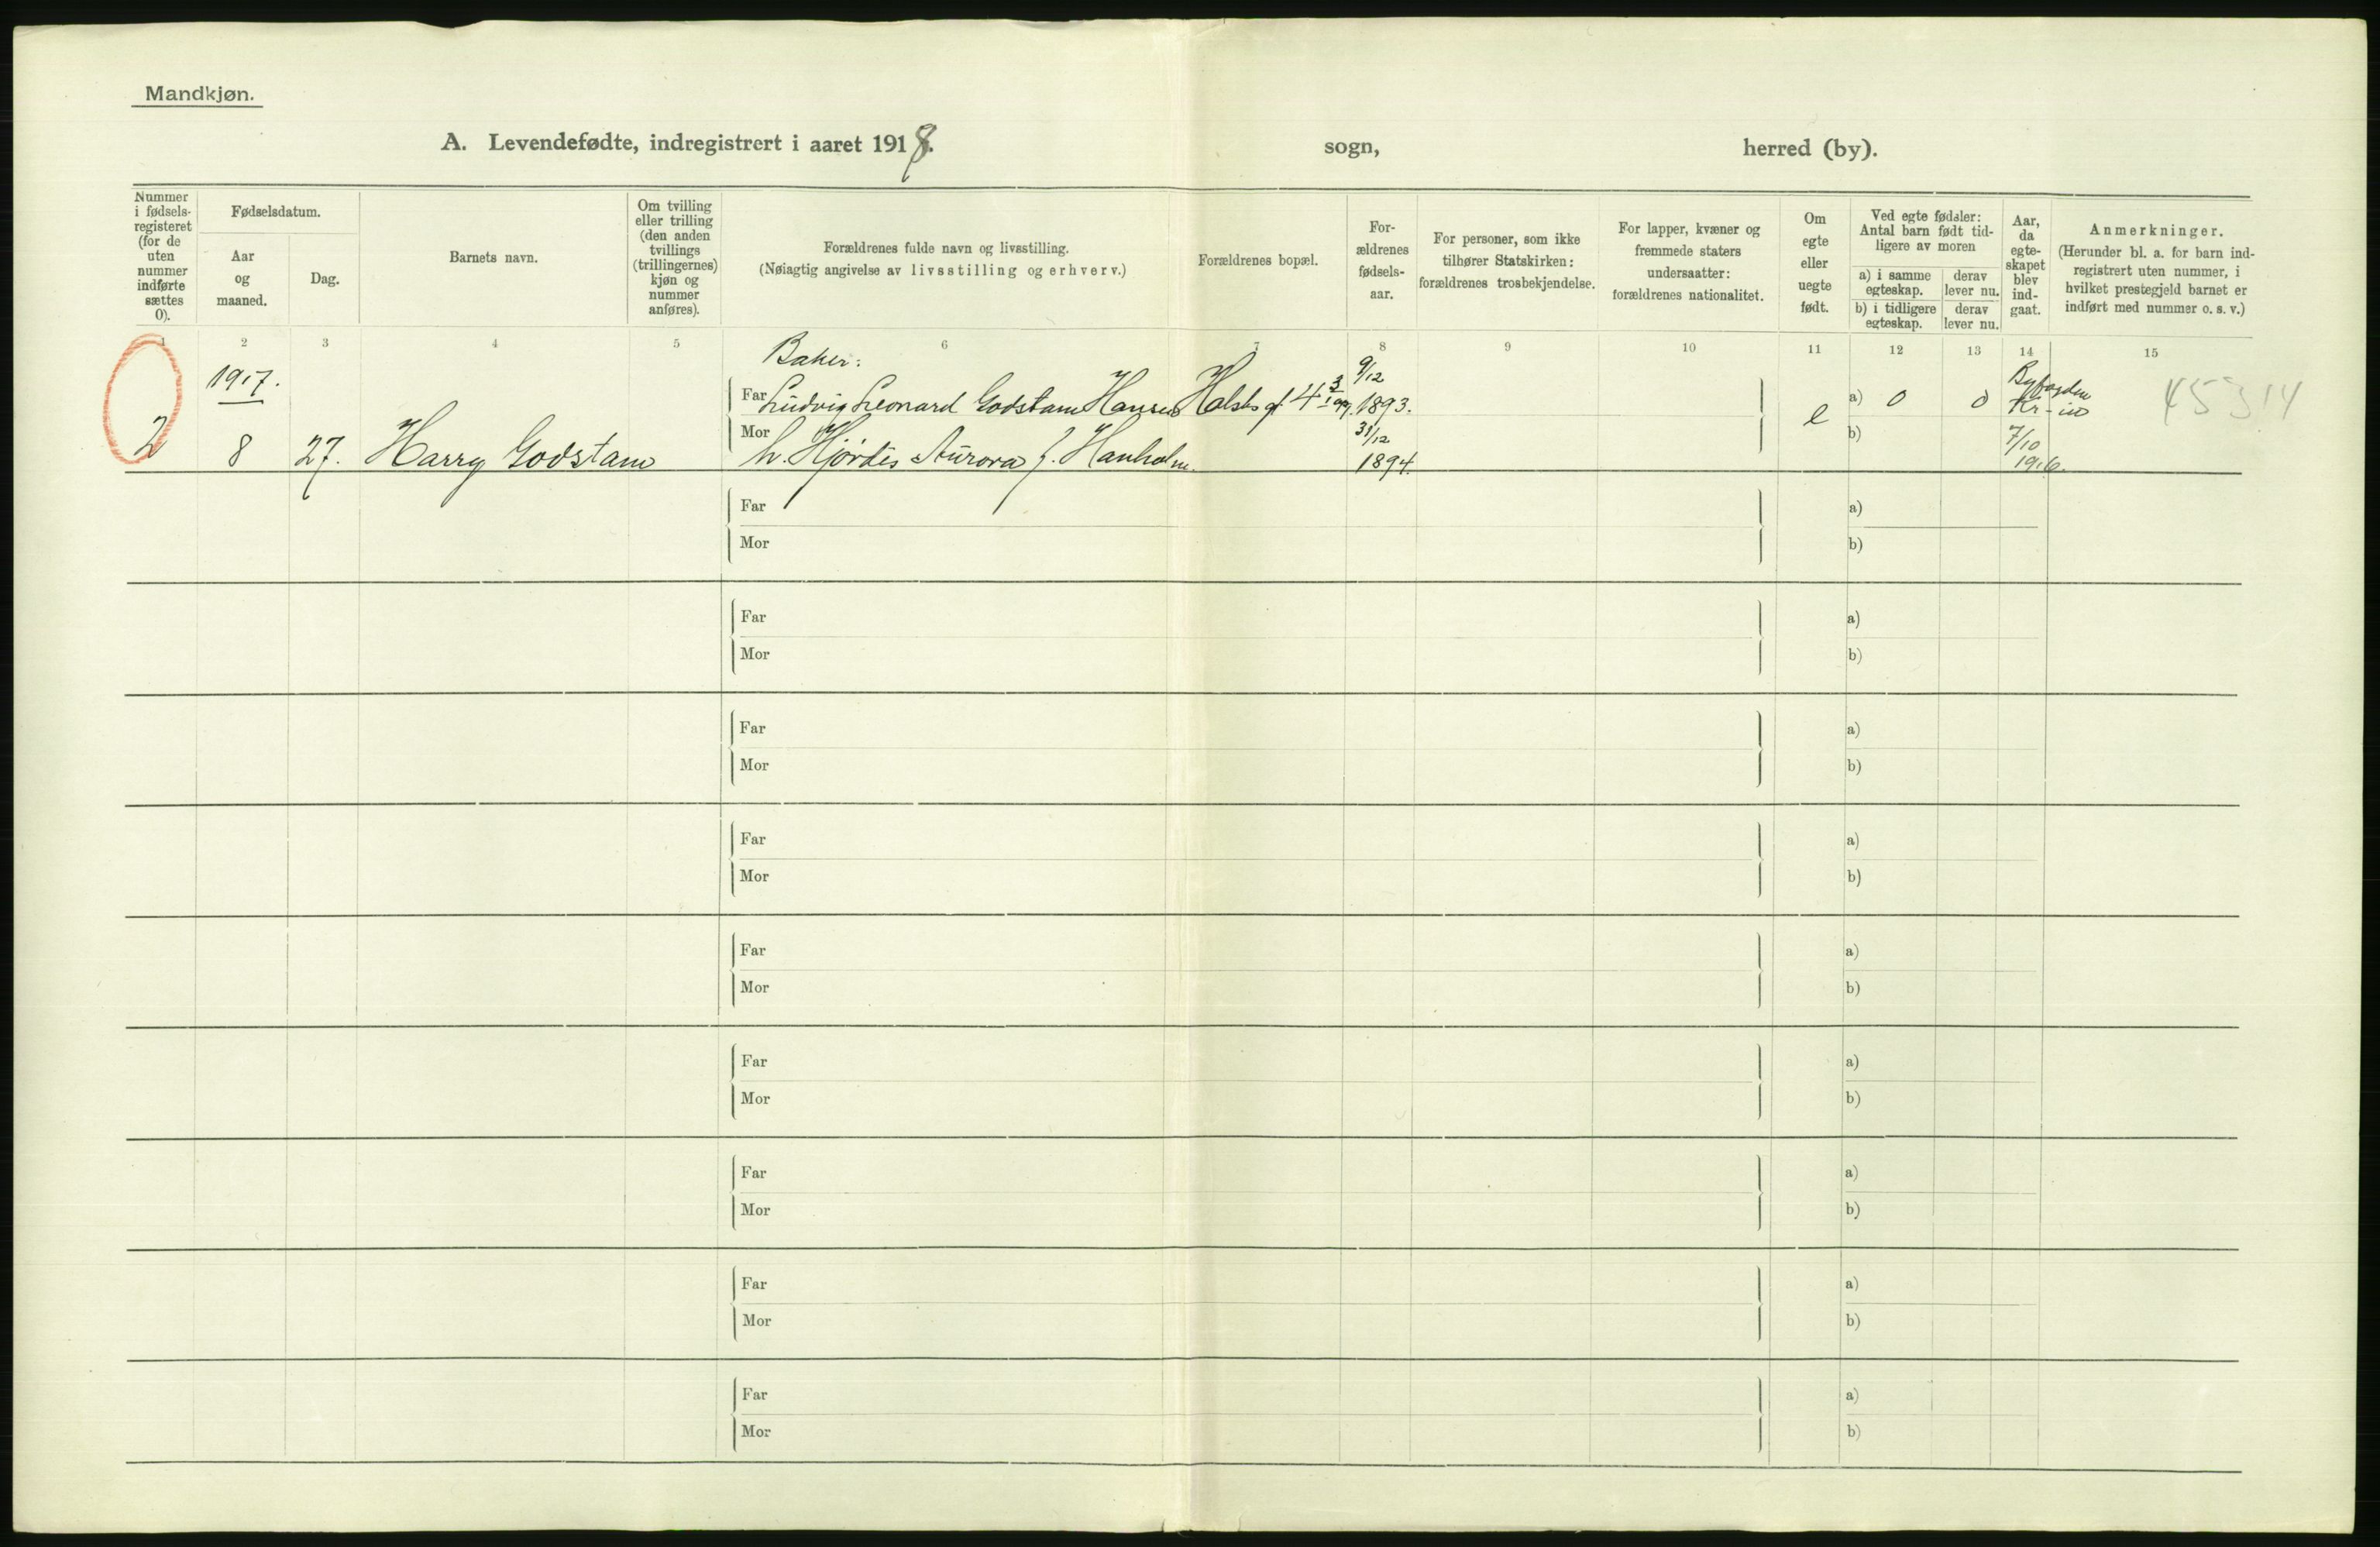 Mandkjøn.
A. Levendefødte, indregistrert i aaret 1918. sogn, herred (by).
Nummer i fødselsregisteret (for de uten nummer indførte sættes 0).
Fødselsdatum.
Aar og maaned.
Dag.
Barnets navn.
Om tvilling eller trilling (den anden tvillings (trillingernes) kjøn og nummer anføres).
Forældrenes fulde navn og livsstilling.
(Nøiagtig angivelse av livsstilling og erhverv.)
Forældrenes bopæl.
Forældrenes fødselsaar.
For personer, som ikke tilhører Statskirken: forældrenes trosbekjendelse.
For lapper, kvæner og fremmede staters undersaatter: forældrenes nationalitet.
Om egte eller uegte født.
Ved egte fødsler: Antal barn født tidligere av moren
a) i samme egteskap.
derav lever nu.
b) i tidligere egteskap.
derav lever nu.
Aar, da egteskapet blev indgaat.
Anmerkninger.
(Herunder bl. a. for barn indregistrert uten nummer, i hvilket prestegjeld barnet er indført med nummer o. s. v.)
1 2 3 4 5 6 7 8 9 10 11 12 13 14 15
Baker:
1917.
9/12
Byfogden
Far Ludvig Leonard Godstam Hansen Holsts gt. 4 1893. a) 0 0 Kr-ia 45314
2 8 27. Harry Godstam
Mor h. Hjördis Aurora f. Hanholm 31/12 1894. e b) 7/10 1916.
Far a)
Mor b)
Far a)
Mor b)
Far a)
Mor b)
Far a)
Mor b)
Far a)
Mor b)
Far a)
Mor b)
Far a)
Mor b)
Far a)
Mor b)
Far a)
Mor b)